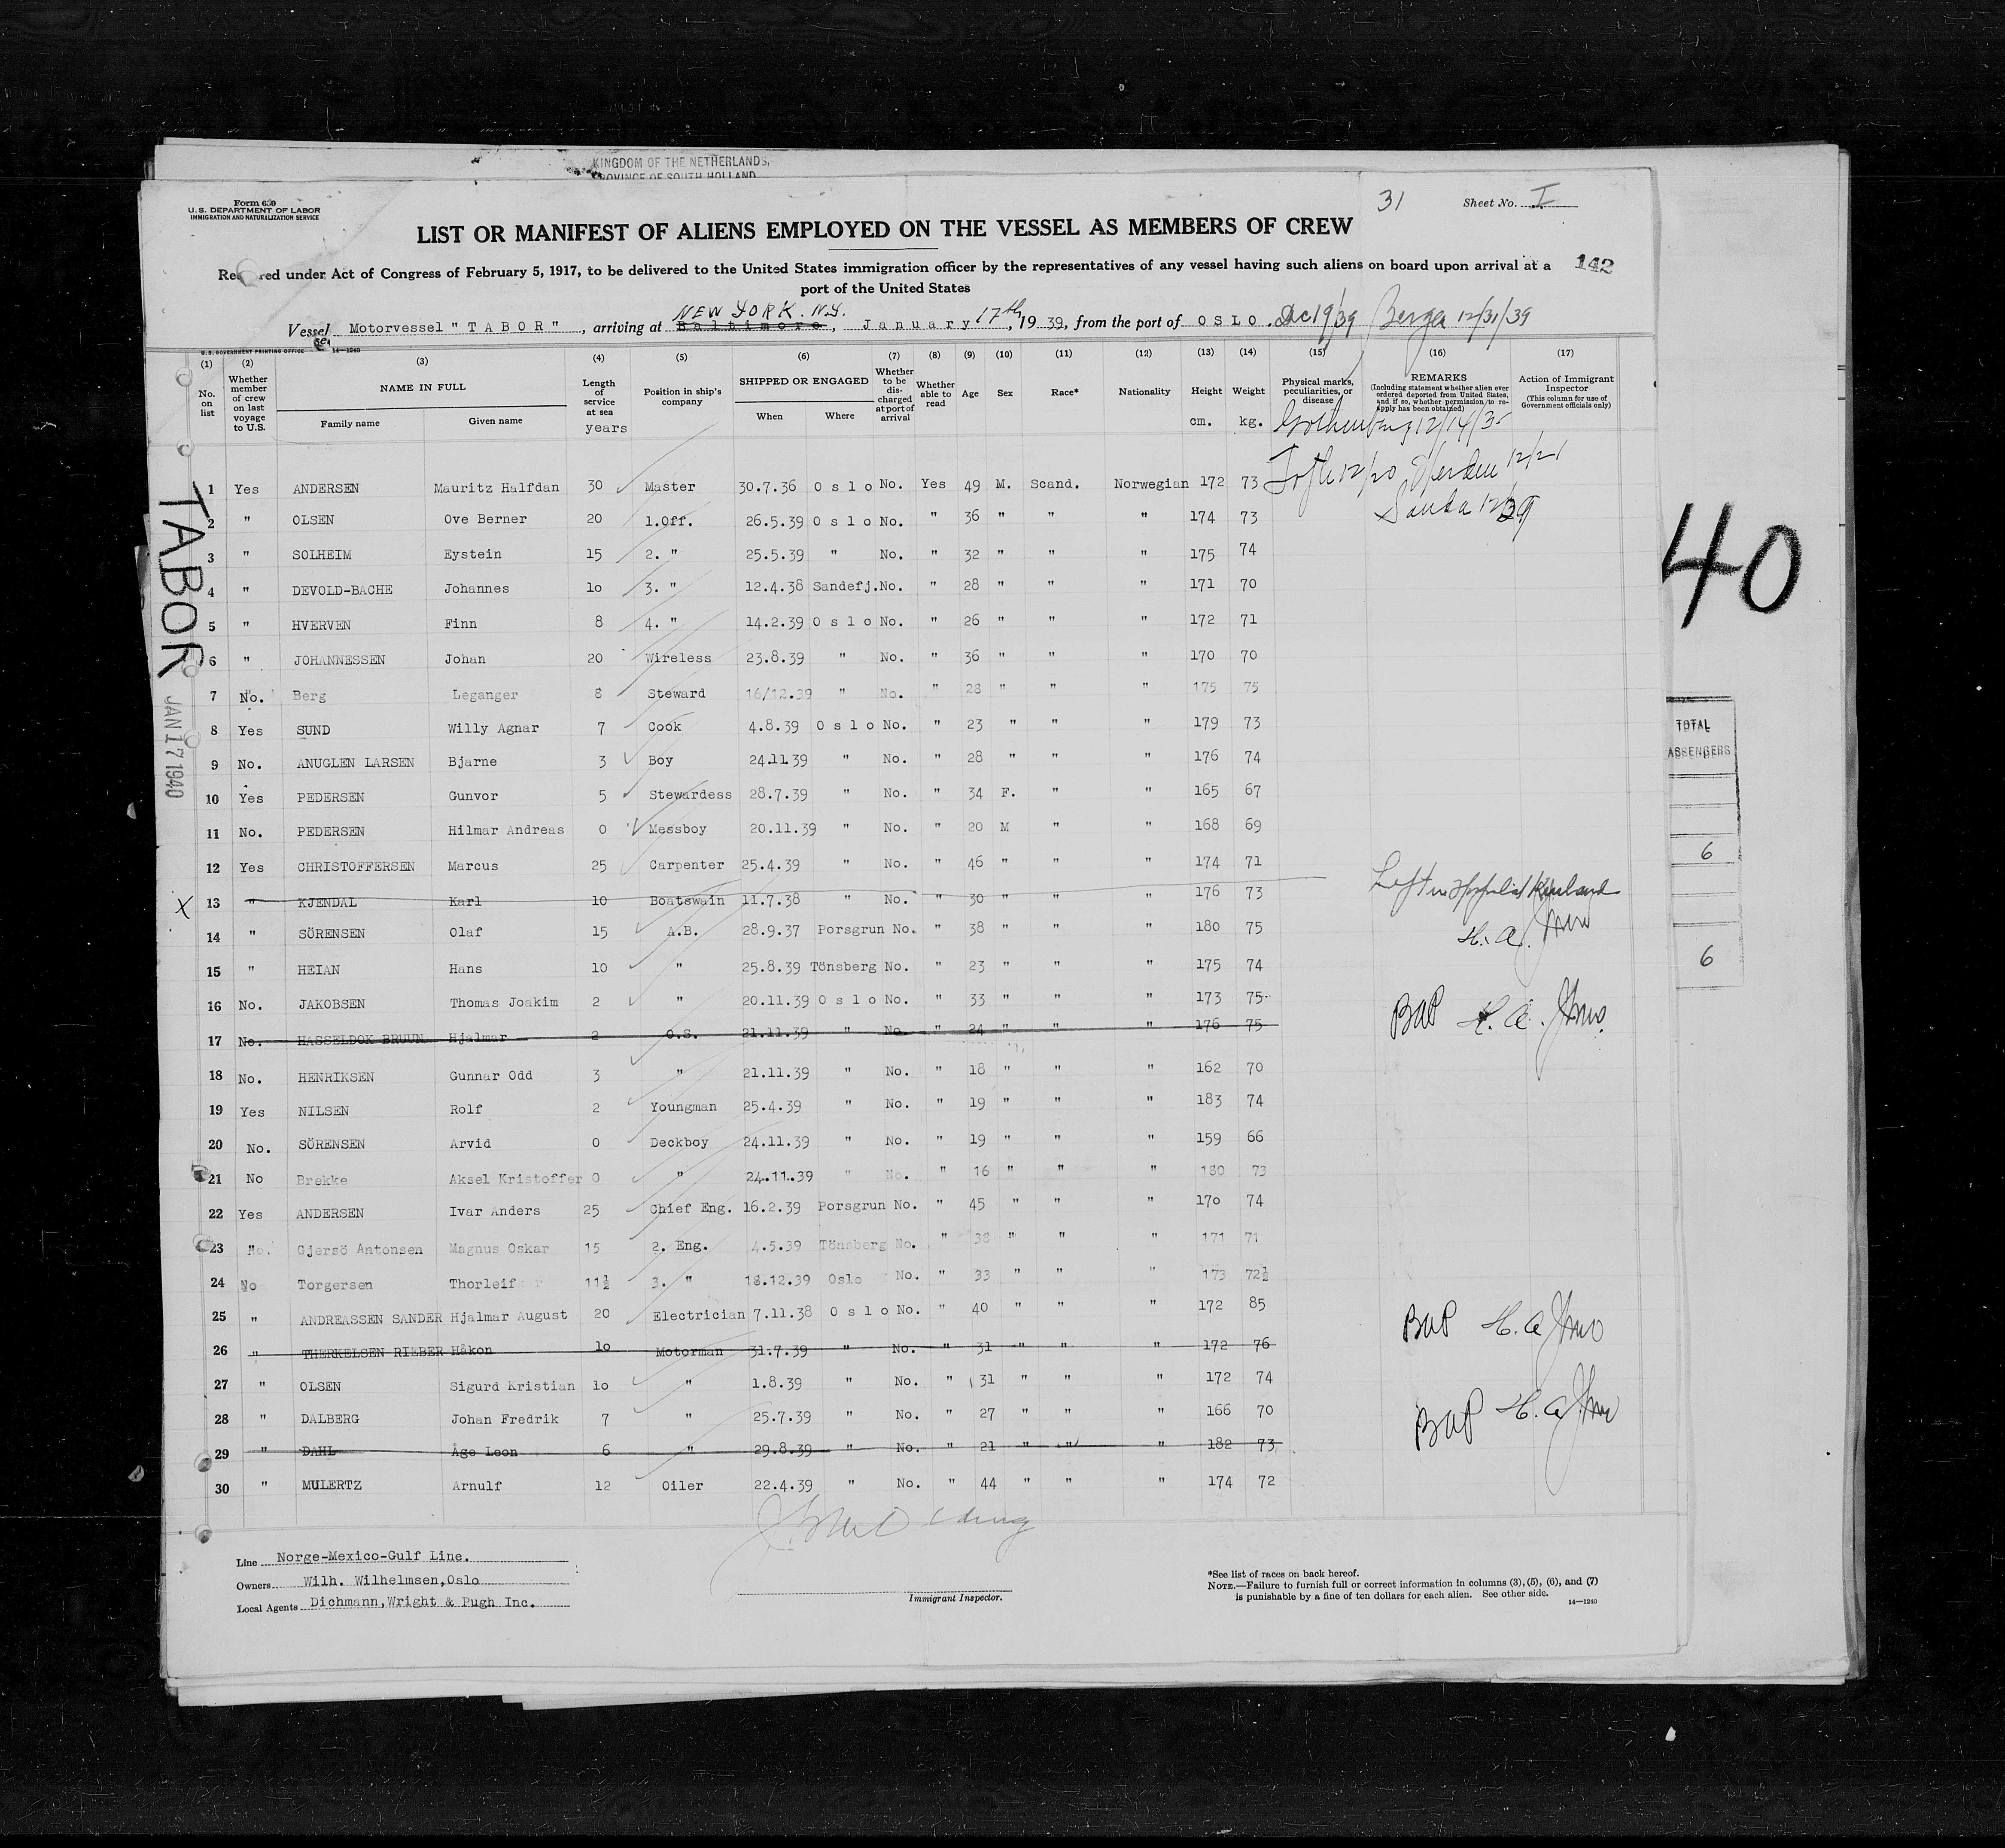 KINGDOM OF THE NETHERLANDS,
PROVINCE OF SOUTH HOLLAND
Form 680
U.S. DEPARTMENT OF LABOR
IMMIGRATION AND NATURALIZATION SERVICE
31
Sheet No. I
LIST OR MANIFEST OF ALIENS EMPLOYED ON THE VESSEL AS MEMBERS OF CREW
Required under Act of Congress of February 5, 1917, to be delivered to the United States immigration officer by the representatives of any vessel having such aliens on board upon arrival at a
port of the United States
142
NEW YORK. N.Y.
Vessel Motorvessel "TABOR", arriving at Baltimore, January 17th, 19 39, from the port of OSLO. Dec 19/39 Berga 12/31/39
U.S. GOVERNMENT PRINTING OFFICE 14—1240
(1) (2) (3) (4) (5) (6) (7) (8) (9) (10) (11) (12) (13) (14) (15) (16) (17)
No. on list
Whether member of crew on last voyage to U.S.
NAME IN FULL
Family name
Given name
Length of service at sea
years
Position in ship's company
SHIPPED OR ENGAGED
When
Where
Whether to be discharged at port of arrival
Whether able to read
Age
Sex
Race*
Nationality
Height
cm.
Weight
kg.
Physical marks, peculiarities, or disease
REMARKS
(Including statement whether alien ever ordered deported from United States, and if so, whether permission to reapply has been obtained)
Action of Immigrant Inspector
(This column for use of Government officials only)
1 Yes ANDERSEN Mauritz Halfdan 30 Master 30.7.36 Oslo No. Yes 49 M. Scand. Norwegian 172 73
2 " OLSEN Ove Berner 20 1.Off. 26.5.39 Oslo No. " 36 " " " 174 73
3 " SOLHEIM Eystein 15 2. " 25.5.39 " No. " 32 " " " 175 74
4 " DEVOLD-BACHE Johannes 10 3. " 12.4.38 Sandefj. No. " 28 " " " 171 70
5 " HVERVEN Finn 8 4. " 14.2.39 Oslo No. " 26 " " " 172 71
6 " JOHANNESSEN Johan 20 Wireless 23.8.39 " No. " 36 " " " 170 70
7 No. Berg Leganger 8 Steward 16/12.39 " No. " 28 " " " 175 75
8 Yes SUND Willy Agnar 7 Cook 4.8.39 Oslo No. " 23 " " " 179 73
9 No. ANUGLEN LARSEN Bjarne 3 Boy 24.11.39 " No. " 28 " " " 176 74
10 Yes PEDERSEN Gunvor 5 Stewardess 28.7.39 " No. " 34 F. " " 165 67
11 No. PEDERSEN Hilmar Andreas 0 Messboy 20.11.39 " No. " 20 M " " 168 69
12 Yes CHRISTOFFERSEN Marcus 25 Carpenter 25.4.39 " No. " 46 " " " 174 71
X 13 " KJENDAL Karl 10 Boatswain 11.7.38 " No. " 30 " " " 176 73 Left in Hospital
14 " SÖRENSEN Olaf 15 A.B. 28.9.37 Porsgrun No. " 38 " " " 180 75
15 " HEIAN Hans 10 " 25.8.39 Tönsberg No. " 23 " " " 175 74
16 No. JAKOBSEN Thomas Joakim 2 " 20.11.39 Oslo No. " 33 " " " 173 75
17 No. HASSELDOK BRUUN Hjalmar 2 O.S. 21.11.39 " No. " 24 " " " 176 75
18 No. HENRIKSEN Gunnar Odd 3 " 21.11.39 " No. " 18 " " " 162 70
19 Yes NILSEN Rolf 2 Youngman 25.4.39 " No. " 19 " " " 183 74
20 No. SÖRENSEN Arvid 0 Deckboy 24.11.39 " No. " 19 " " " 159 66
21 No Brekke Aksel Kristoffer 0 " 24.11.39 " No. " 16 " " " 180 73
22 Yes ANDERSEN Ivar Anders 25 Chief Eng. 16.2.39 Porsgrun No. " 45 " " " 170 74
23 No. Gjersö Antonsen Magnus Oskar 15 2. Eng. 4.5.39 Tönsberg No. " 38 " " " 171 71
24 No Torgersen Thorleif 11½ 3. " 18.12.39 Oslo No. " 33 " " " 173 72½
25 " ANDREASSEN SANDER Hjalmar August 20 Electrician 7.11.38 Oslo No. " 40 " " " 172 85
26 " THERKELSEN RIEBER Håkon 10 Motorman 31.7.39 " No. " 31 " " " 172 76
27 " OLSEN Sigurd Kristian 10 " 1.8.39 " No. " 31 " " " 172 74
28 " DALBERG Johan Fredrik 7 " 25.7.39 " No. " 27 " " " 166 70
29 " DAHL Åge Leon 6 " 29.8.39 " No. " 21 " " " 182 73
30 " MULERTZ Arnulf 12 Oiler 22.4.39 " No. " 44 " " " 174 72
TABOR
JAN 17 1940
40
TOTAL
PASSENGERS
6
6
Line Norge-Mexico-Gulf Line.
Owners Wilh. Wilhelmsen,Oslo
Local Agents Dichmann,Wright & Pugh Inc.
Immigrant Inspector.
*See list of races on back hereof.
NOTE.—Failure to furnish full or correct information in columns (3), (5), (6), and (7)
is punishable by a fine of ten dollars for each alien. See other side.
14—1240